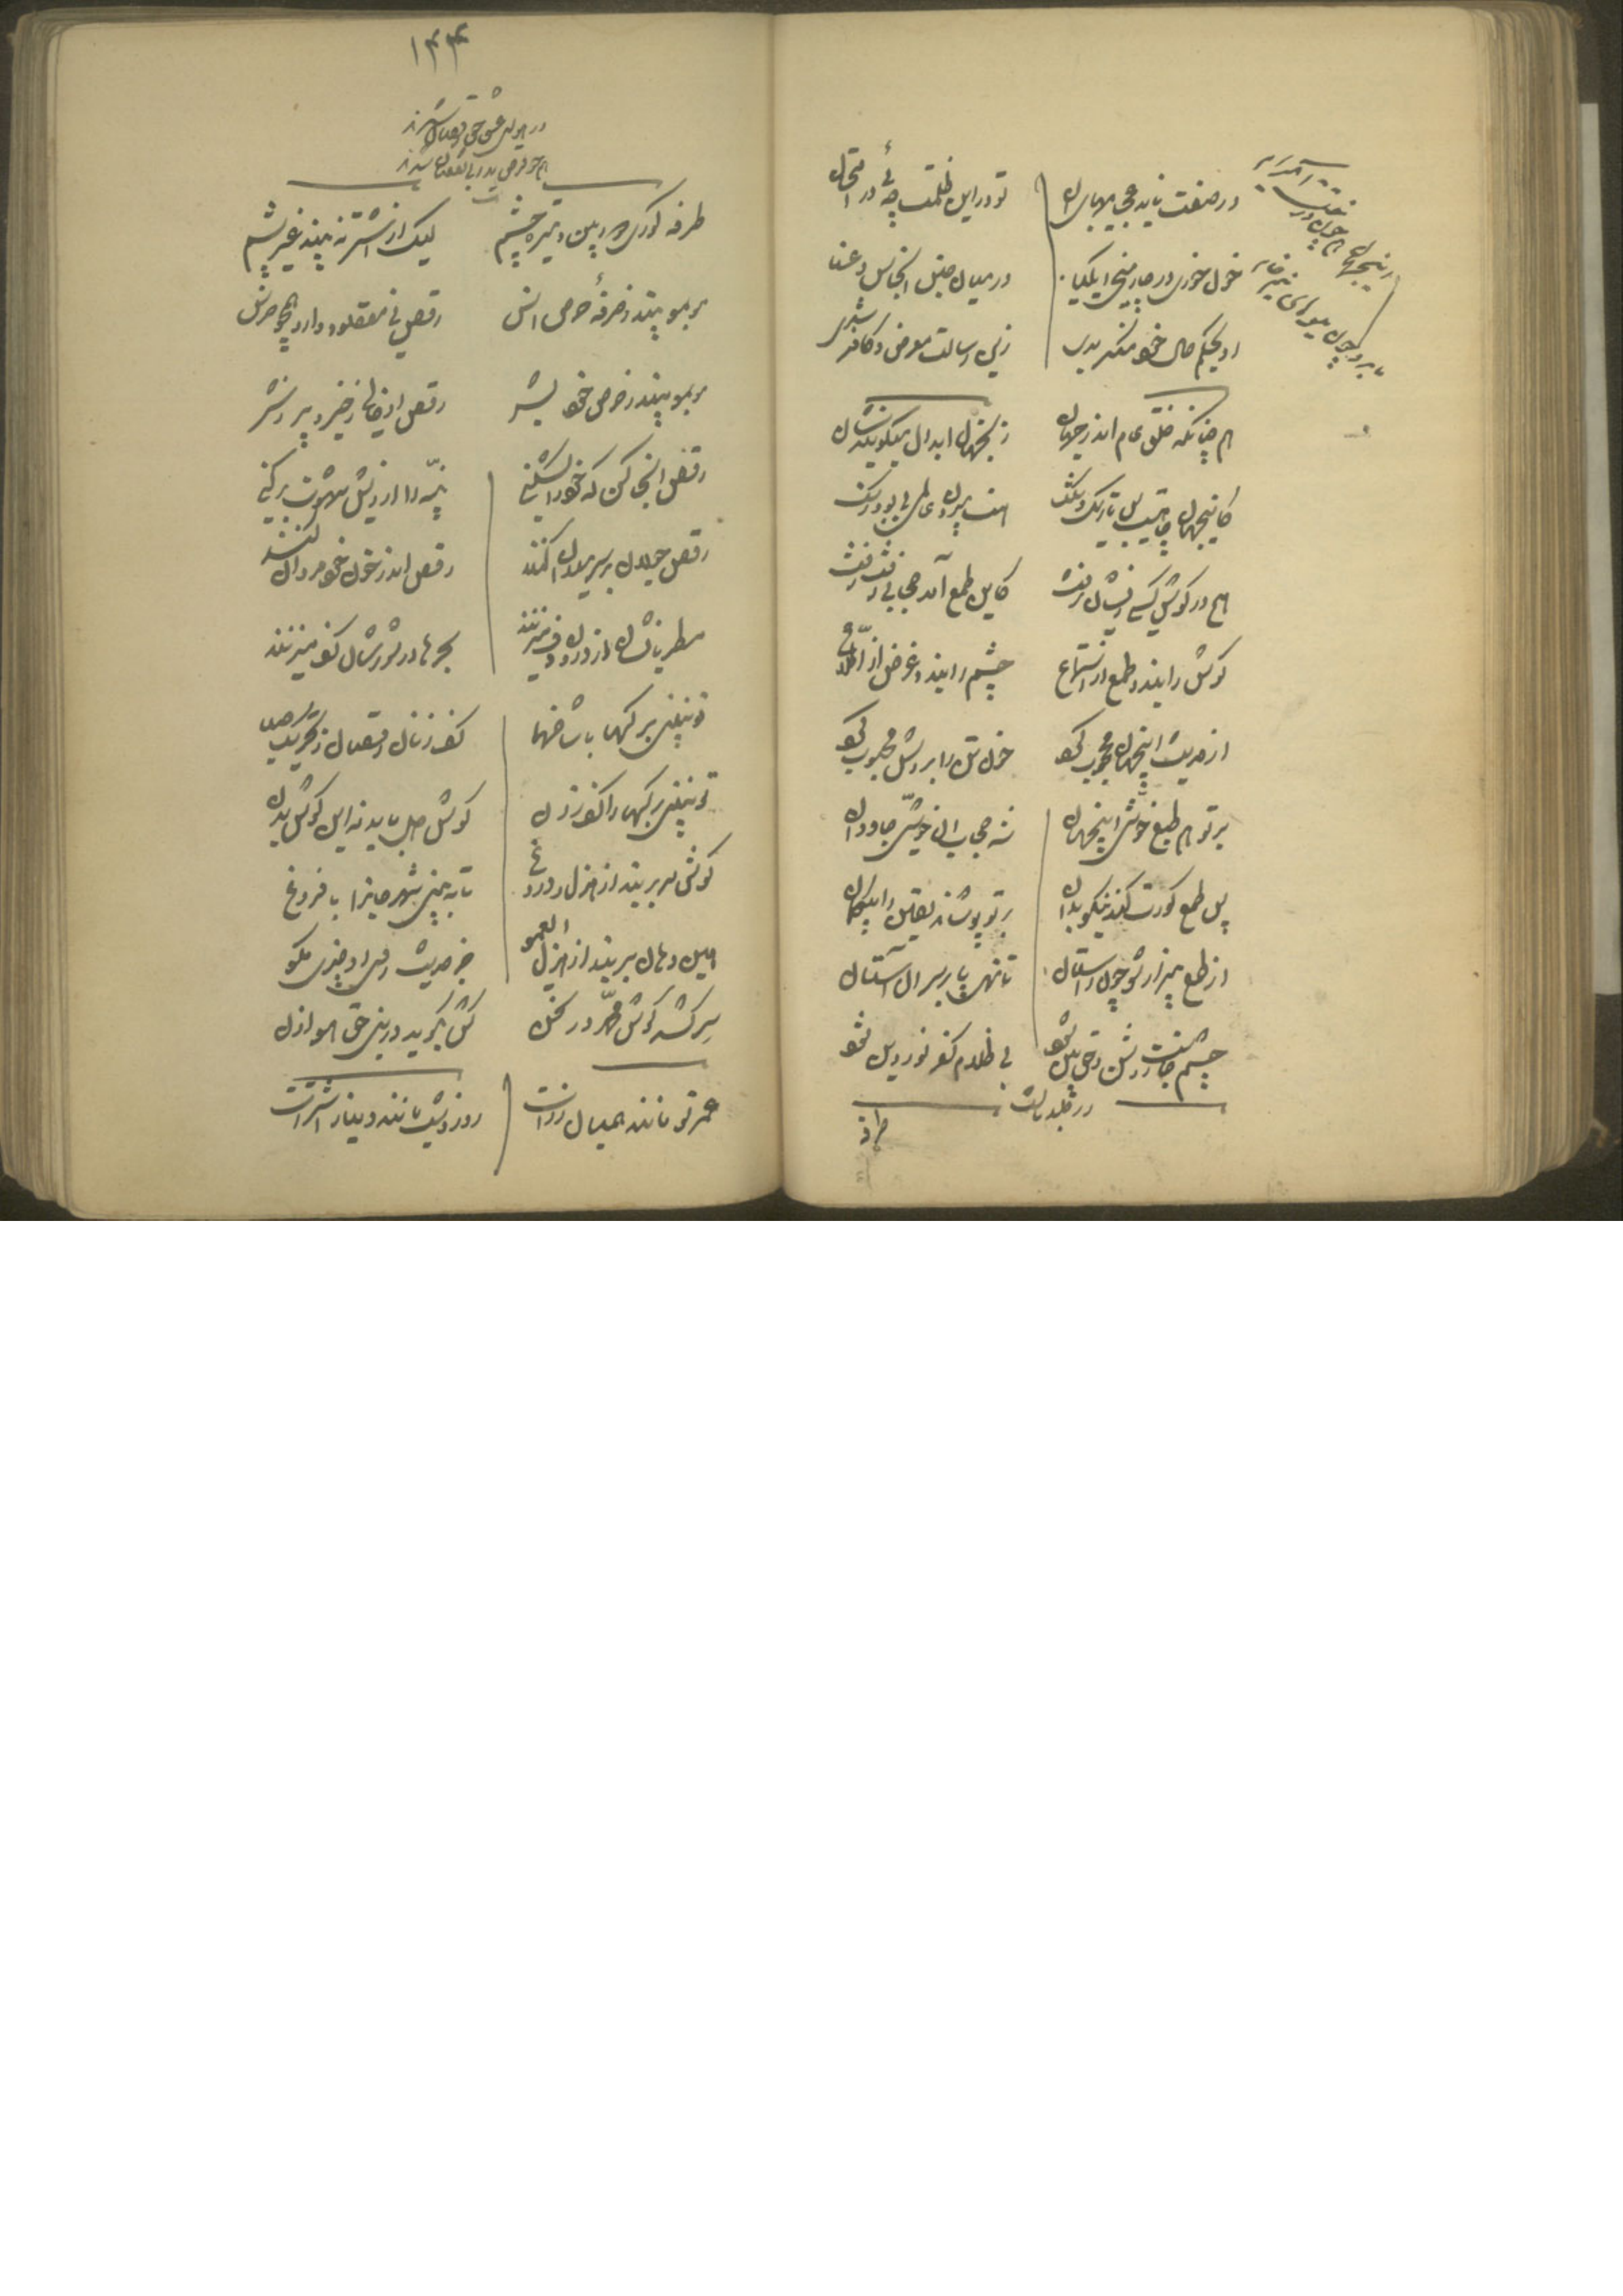 در صفت ناید عجایبهای آن
تو در این ظلمت چه‌ئی در امتحان
خون خوری در چار میخ تنگنا
در میان حبس انجاس و عنا
او بحکم حال خود منکر بدی
زین رسالت معرض و کافر شدی
همچنانکه خلق عام اندر جهان
زانجهان ابدال میگویندشان
کاینجهان چاهیست بس تاریک و تنگ
هست بیرون عالمی بی بو و رنگ
هیچ در گوش کسی زیشان نرفت
کاین طمع آمد حجابی ژرف و زفت
گوش را بندد طمع از استماع
چشم را بندد غرض از اطلاع
از حدیث اینجهان محجوب کرد
خون تن را بر دلش محبوب کرد
بر تو هم طمع خوشی اینجهان
شد حجاب آن خوشی جاودان
پس طمع کورت کند نیکو بدان
بر تو پوشاند یقین را بیگمان
از طمع بیزار شو چون راستان
تا نهی پا بر سر آن آستان
چشم جانت روشن و حق بین شود
بی ظلام کفر نور دین شود
در جلد ثالث
۱۳۴
در هوای عشق حق رقصان شوند
همچو قرص بدر بی نقصان شوند
طرفه کوری دوربین و تیز چشم
لیک از اشتر نه بیند غیر پشم
مو بمو بیند ز صرفه حرص انس
رقص بی مقصود دارد همچو خرس
مو بمو بیند ز حرص خود بشر
رقص او خالی ز خیر و پر ز شر
رقص آنجا کن که خود را بشکنی
پنبه را از ریش شهوت برکنی
رقص و جولان بر سر میدان کنند
رقص اندر خون خود مردان کنند
مطربانشان از درون دف میزنند
بحرها در شورشان کف میزنند
تو نبینی برگها با شاخها
کف زنان رقصان ز تحریک صبا
تو نبینی برگها را کف زدن
گوش دل باید نه این گوش بدن
گوش سر بربند از هزل و دروغ
تا به بینی شهر جانرا با فروغ
هین دهان بربند از هزل ای عمو
جز حدیث روی او چیزی مگو
سر کشد گوش محمد در سخن
کش بگوید در نبی حق هو اذن
عمر تو مانند همیان زر است
روز و شب مانند دینار اشمر است